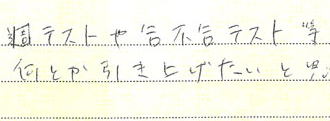 週テストや合不合テスト等
何とか引き上げたいと思